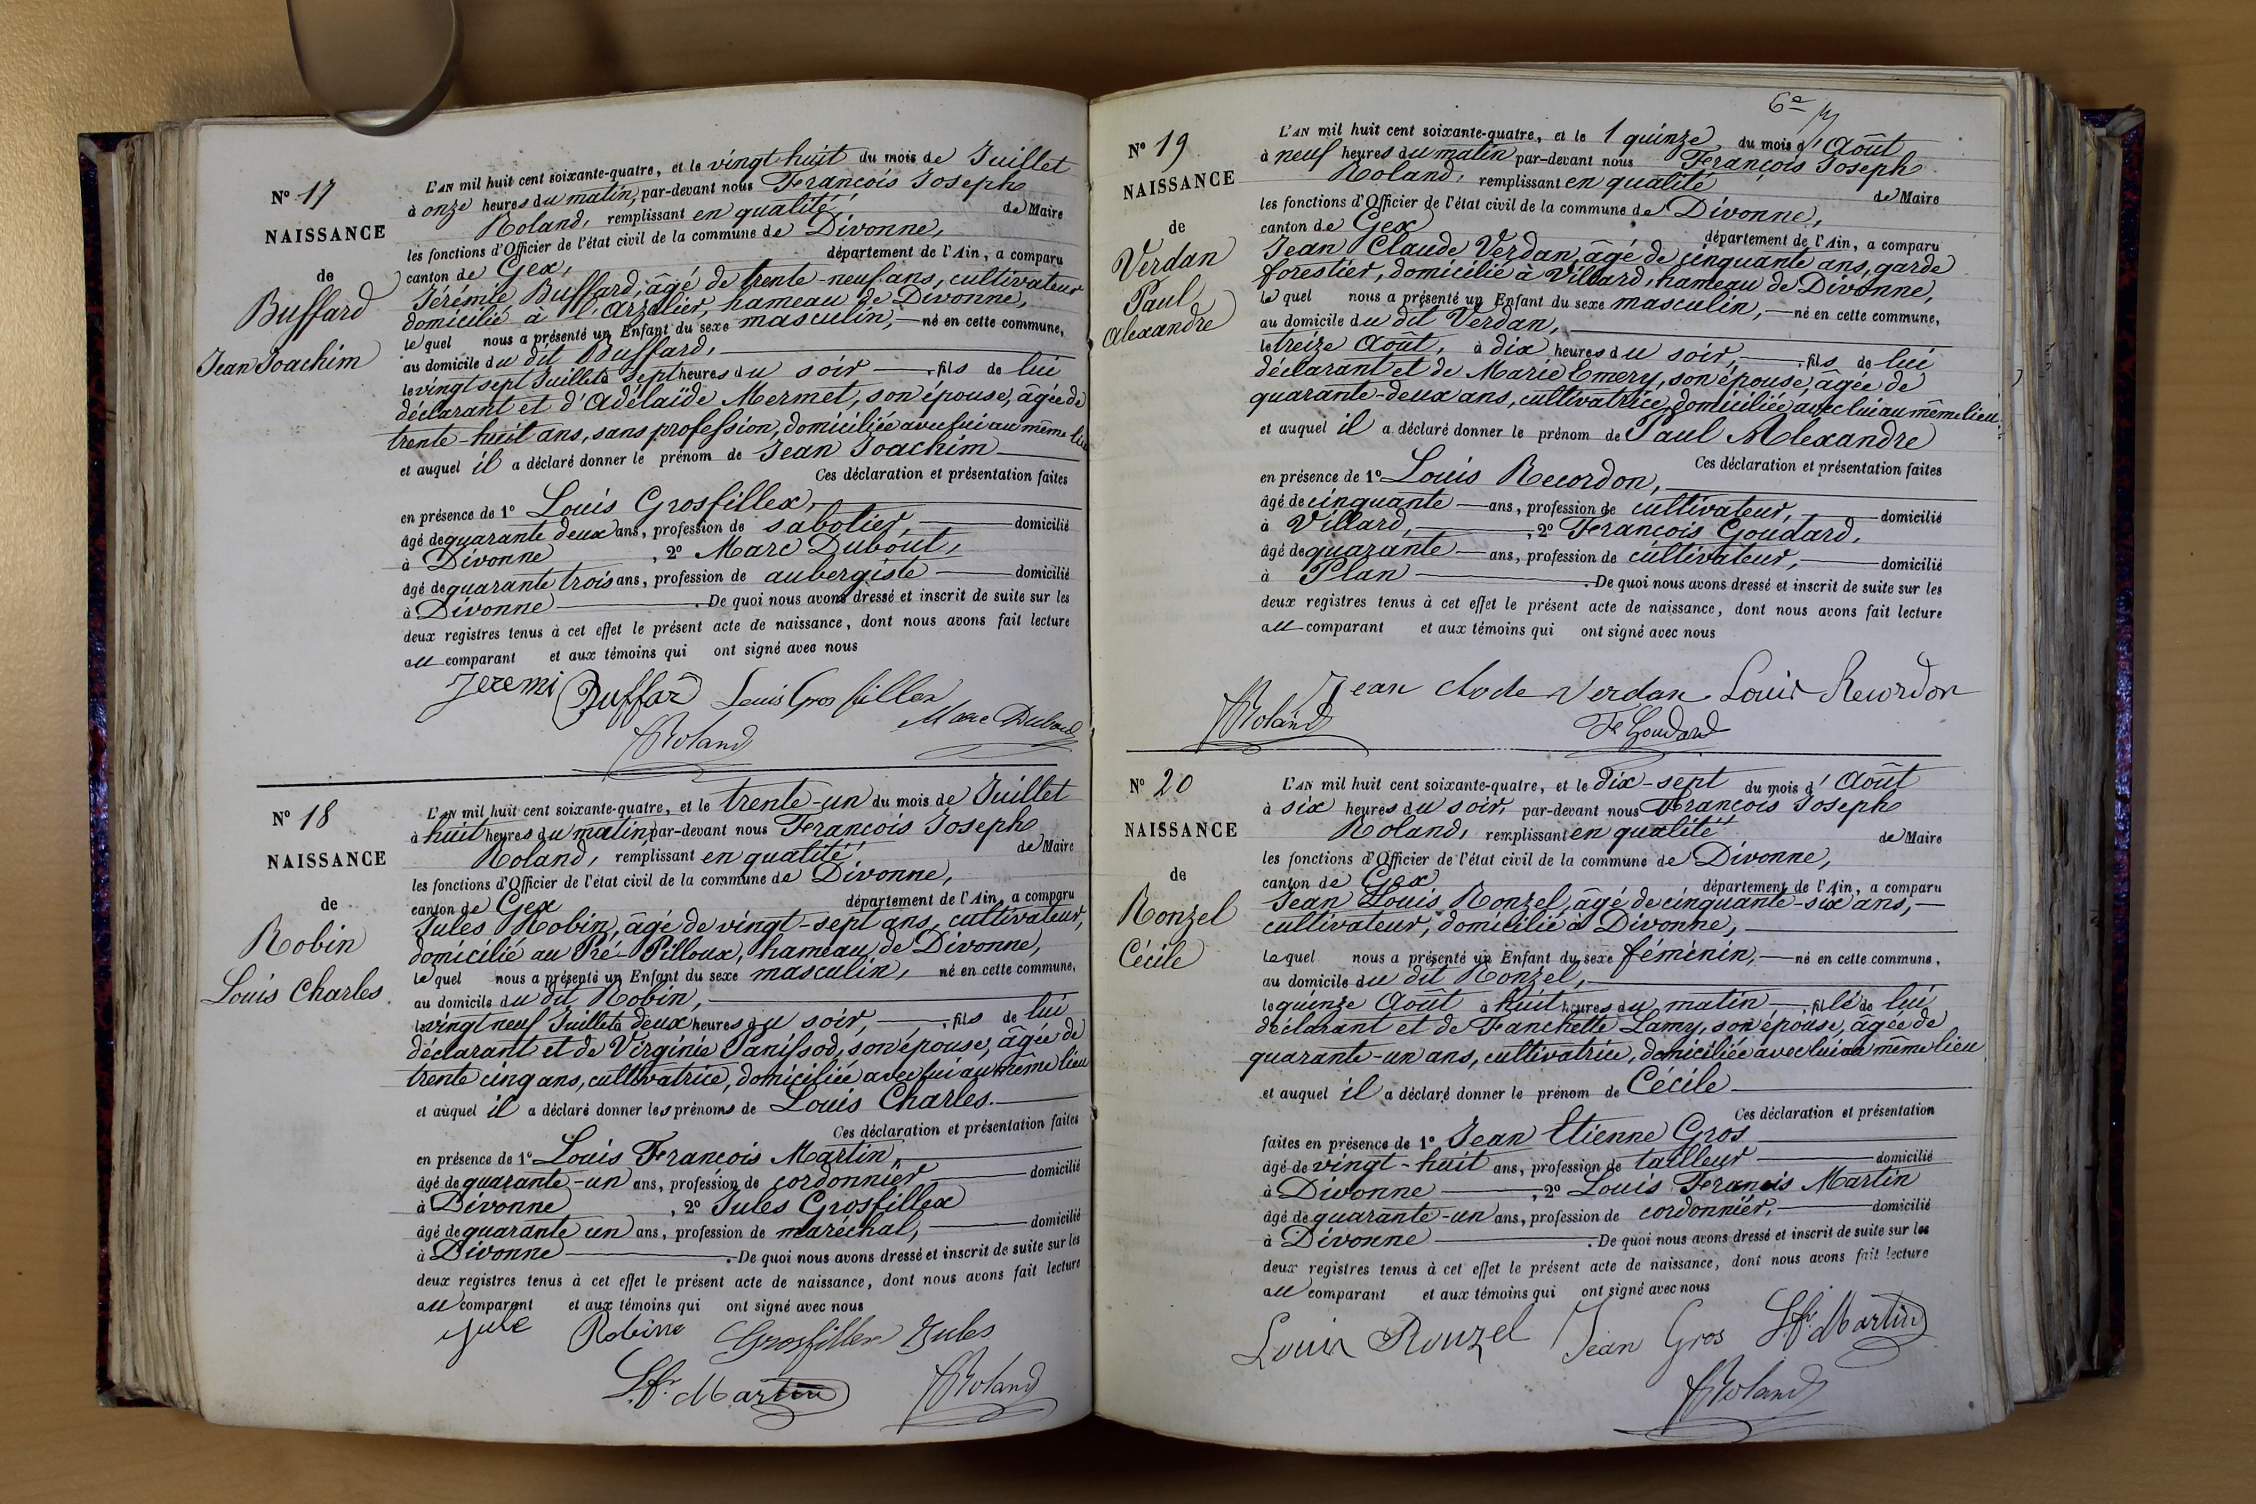 Nº 17
NAISSANCE
de
Buffard
Jean Joachim
L'AN mil huit cent soixante-quatre, et le vingt huit du mois de Juillet
à onze heures du matin, par-devant nous François Joseph
Roland, remplissant en qualité de Maire
les fonctions d'Officier de l'état civil de la commune de Divonne,
canton de Gex, département de l'Ain, a comparu
Jérémie Buffard, âgé de trente-neuf ans, cultivateur
domicilié à l'Arzelier, hameau de Divonne,
le quel nous a présenté un Enfant du sexe masculin, né en cette commune,
au domicile du dit Buffard,
le vingt sept Juillet à sept heures du soir, fils de lui
déclarant et d'Adélaïde Mermet, son épouse, âgée de
trente-huit ans, sans profession, domiciliée avec lui au même lieu
et auquel il a déclaré donner le prénom de Jean Joachim
Ces déclaration et présentation faites
en présence de 1º Louis Grosfillex,
âgé de quarante deux ans, profession de sabotier, domicilié
à Divonne, 2º Marc Dubout,
âgé de quarante trois ans, profession de aubergiste domicilié
à Divonne. De quoi nous avons dressé et inscrit de suite sur les
deux registres tenus à cet effet le présent acte de naissance, dont nous avons fait lecture
au comparant et aux témoins qui ont signé avec nous
Jeremi Buffar Louis Gros fillex
Marc Dubout
Roland
Nº 18
NAISSANCE
de
Robin
Louis Charles.
L'AN mil huit cent soixante-quatre, et le trente-un du mois de Juillet
à huit heures du matin, par-devant nous François Joseph
Roland, remplissant en qualité de Maire
les fonctions d'Officier de l'état civil de la commune de Divonne,
canton de Gex département de l'Ain, a comparu
Jules Robin, âgé de vingt-sept ans, cultivateur,
domicilié au Pré-Pilloux, hameau de Divonne,
le quel nous a présenté un Enfant du sexe masculin, né en cette commune,
au domicile du dit Robin,
le vingt neuf Juillet à deux heures du soir, fils de lui
déclarant et de Virginie Panissod, son épouse, âgée de
trente cinq ans, cultivatrice, domiciliée avec lui au même lieu
et auquel il a déclaré donner les prénoms de Louis Charles.
Ces déclaration et présentation faites
en présence de 1º Louis François Martin,
âgé de quarante-un ans, profession de cordonnier domicilié
à Divonne, 2º Jules Grosfillex
âgé de quarante un ans, profession de maréchal, domicilié
à Divonne. De quoi nous avons dressé et inscrit de suite sur les
deux registres tenus à cet effet le présent acte de naissance, dont nous avons fait lecture
au comparant et aux témoins qui ont signé avec nous
Jule Robin Grosfillex Jules
L. fs. Martin Roland
6e
Nº 19
NAISSANCE
de
Verdan
Paul
Alexandre
L'AN mil huit cent soixante-quatre, et le quinze du mois d'Août
à neuf heures du matin par-devant nous François Joseph
Roland, remplissant en qualité de Maire
les fonctions d'Officier de l'état civil de la commune de Divonne,
canton de Gex département de l'Ain, a comparu
Jean Claude Verdan, âgé de cinquante ans, garde
forestier, domicilié à Villard, hameau de Divonne,
le quel nous a présenté un Enfant du sexe masculin, né en cette commune,
au domicile du dit Verdan,
le treize Août, à dix heures du soir, fils de lui
déclarant et de Marie Emery, son épouse, âgée de
quarante-deux ans, cultivatrice, domiciliée avec lui au même lieu.
et auquel il a déclaré donner le prénom de Paul Alexandre
Ces déclaration et présentation faites
en présence de 1º Louis Recordon,
âgé de cinquante ans, profession de cultivateur, domicilié
à Villard, 2º François Goudard,
âgé de quarante ans, profession de cultivateur, domicilié
à Plan. De quoi nous avons dressé et inscrit de suite sur les
deux registres tenus à cet effet le présent acte de naissance, dont nous avons fait lecture
au comparant et aux témoins qui ont signé avec nous
Jean clode Verdan Louis Recordon
Roland Fs Goudard
Nº 20
NAISSANCE
de
Ronzel
Cécile
L'AN mil huit cent soixante-quatre, et le dix-sept du mois d'Août
à six heures du soir, par-devant nous François Joseph
Roland, remplissant en qualité de Maire
les fonctions d'Officier de l'état civil de la commune de Divonne,
canton de Gex département de l'Ain, a comparu
Jean Louis Ronzel, âgé de cinquante-six ans,
cultivateur, domicilié à Divonne,
le quel nous a présenté un Enfant du sexe féminin, né en cette commune,
au domicile du dit Ronzel,
le quinze Août à huit heures du matin, fille de lui
déclarant et de Fanchette Lamy, son épouse, âgée de
quarante-un ans, cultivatrice, domiciliée avec lui au même lieu
et auquel il a déclaré donner le prénom de Cécile
Ces déclaration et présentation
faites en présence de 1º Jean Etienne Gros
âgé de vingt-huit ans, profession de tailleur domicilié
à Divonne, 2º Louis Franois Martin
âgé de quarante-un ans, profession de cordonnier, domicilié
à Divonne. De quoi nous avons dressé et inscrit de suite sur les
deux registres tenus à cet effet le présent acte de naissance, dont nous avons fait lecture
au comparant et aux témoins qui ont signé avec nous
Louis Ronzel Jean Gros L. fs. Martin
Roland